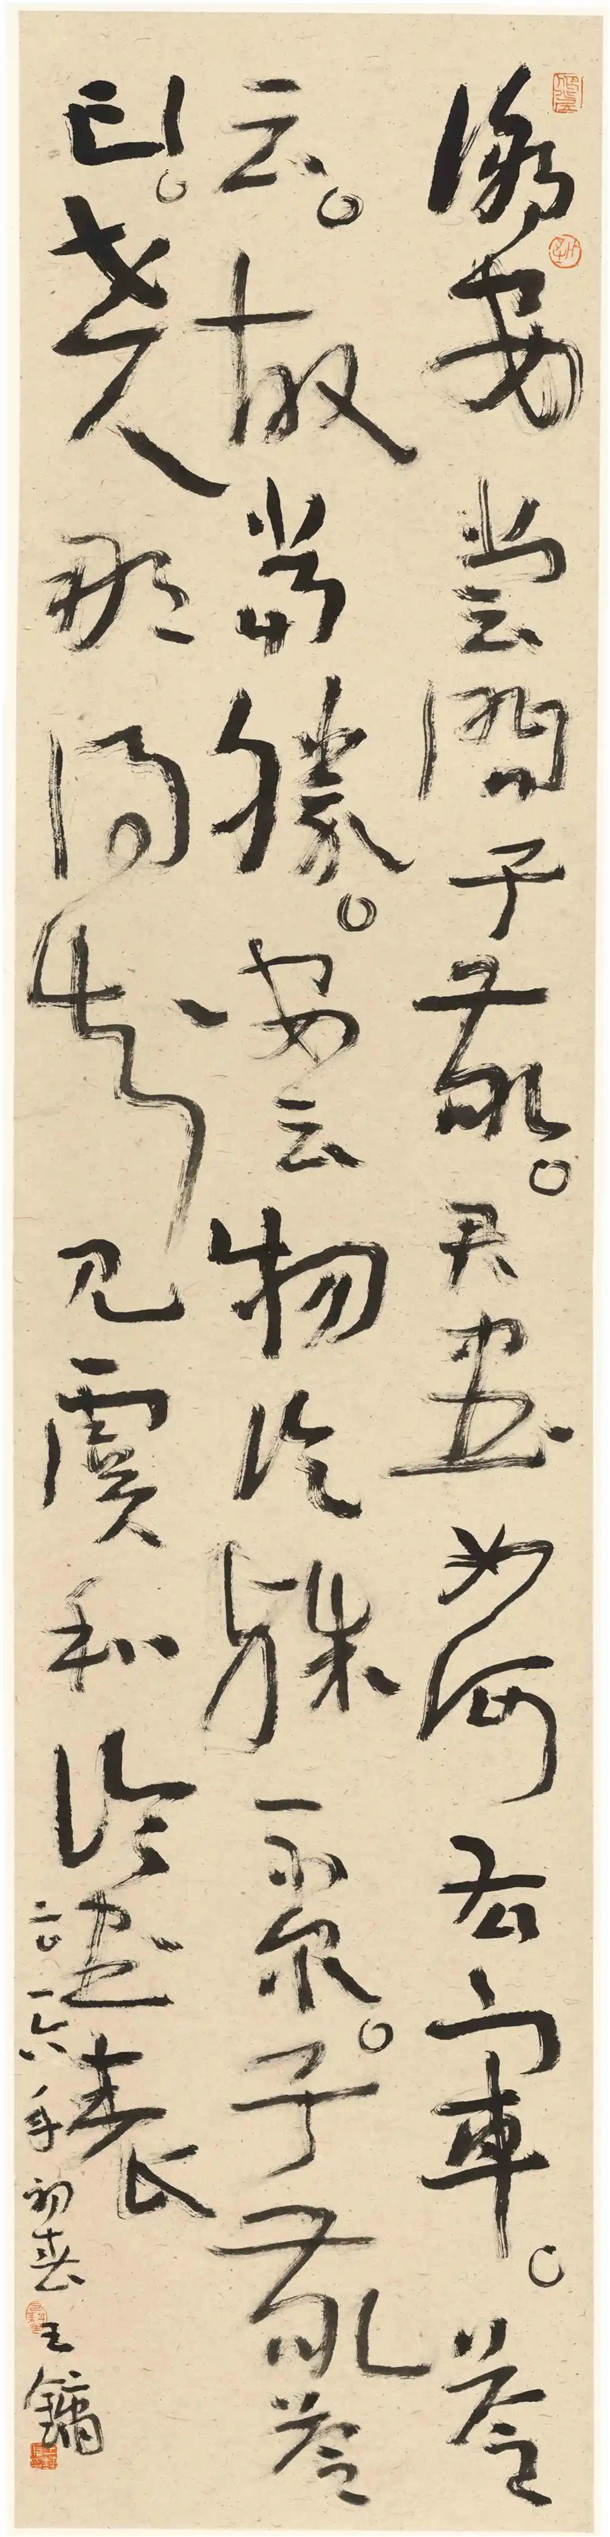 謝安嘗問子敬。君書如何右軍。答
云。故當勝。安云物論殊不爾。子敬答
曰。世人那得知見虞和論書表
二〇一六年初春王鏞